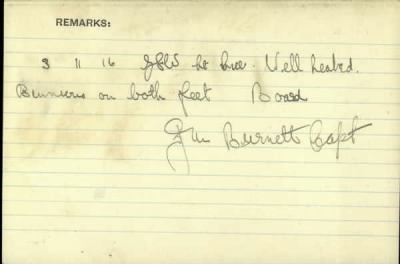 REMARKS:
3 11 16 GSW Lt knee. Well healed.
Bunions on both feet Board
Burnett Capt